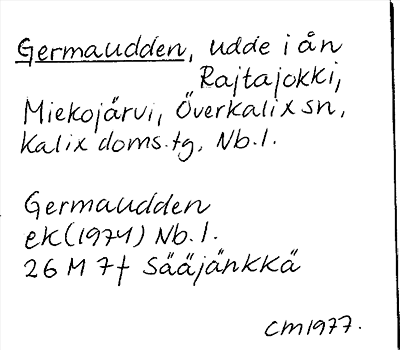 Germaudden, udde i ån
Rajtajokki,
Miekojärvi, Överkalix sn,
Kalix doms.tg, Nb.l.
Germaudden
ek (1974) Nb.l.
26 M 7f Sääjänkkä
CM 1977.